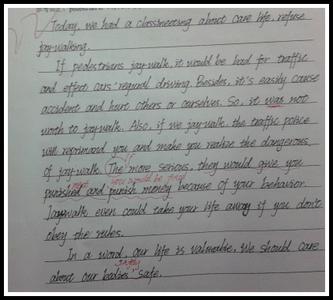 Today, we had a classmeeting about care life, refuse
jay-walking.
If pedestrians jay-walk, it would be bad for traffic
and effect cars' regural driving. Besides, it's easily cause
accident and hurt others or ourselves. So, it was not
worth to jay-walk. Also, if we jay-walk, the traffic police
will reprimand you and make you realize the dangerous
of jay-walk. The more serious, they would give you
punished and punish money because of your behavior.
Jaywalk even could take your life away if you don't
obey the rules.
In a word, our life is valueable. We should care
about our bodies' safe.